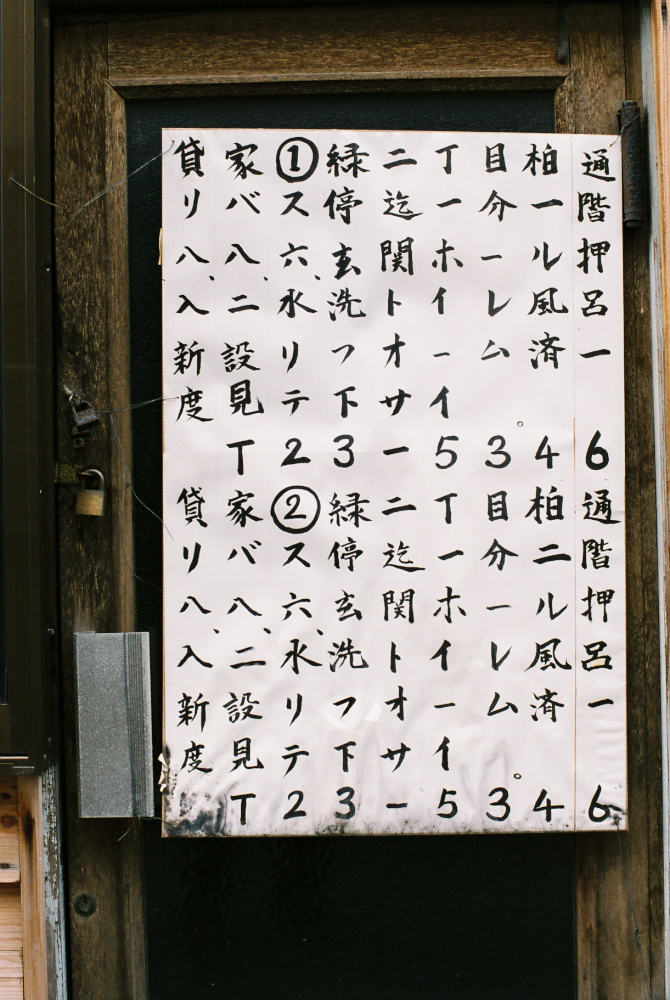 貸家①緑二丁目柏通
リバス停迄一分一階
八、八、六、玄関ホール押
入ニ水洗トイレ風呂
新設リフオーム済一
度見テ下サイ。
T23-5346
貸家②緑二丁目柏通
リバス停迄一分二階
八、八、六、玄関ホール押
入ニ水洗トイレ風呂
新設リフオーム済一
度見テ下サイ。
T23-5346